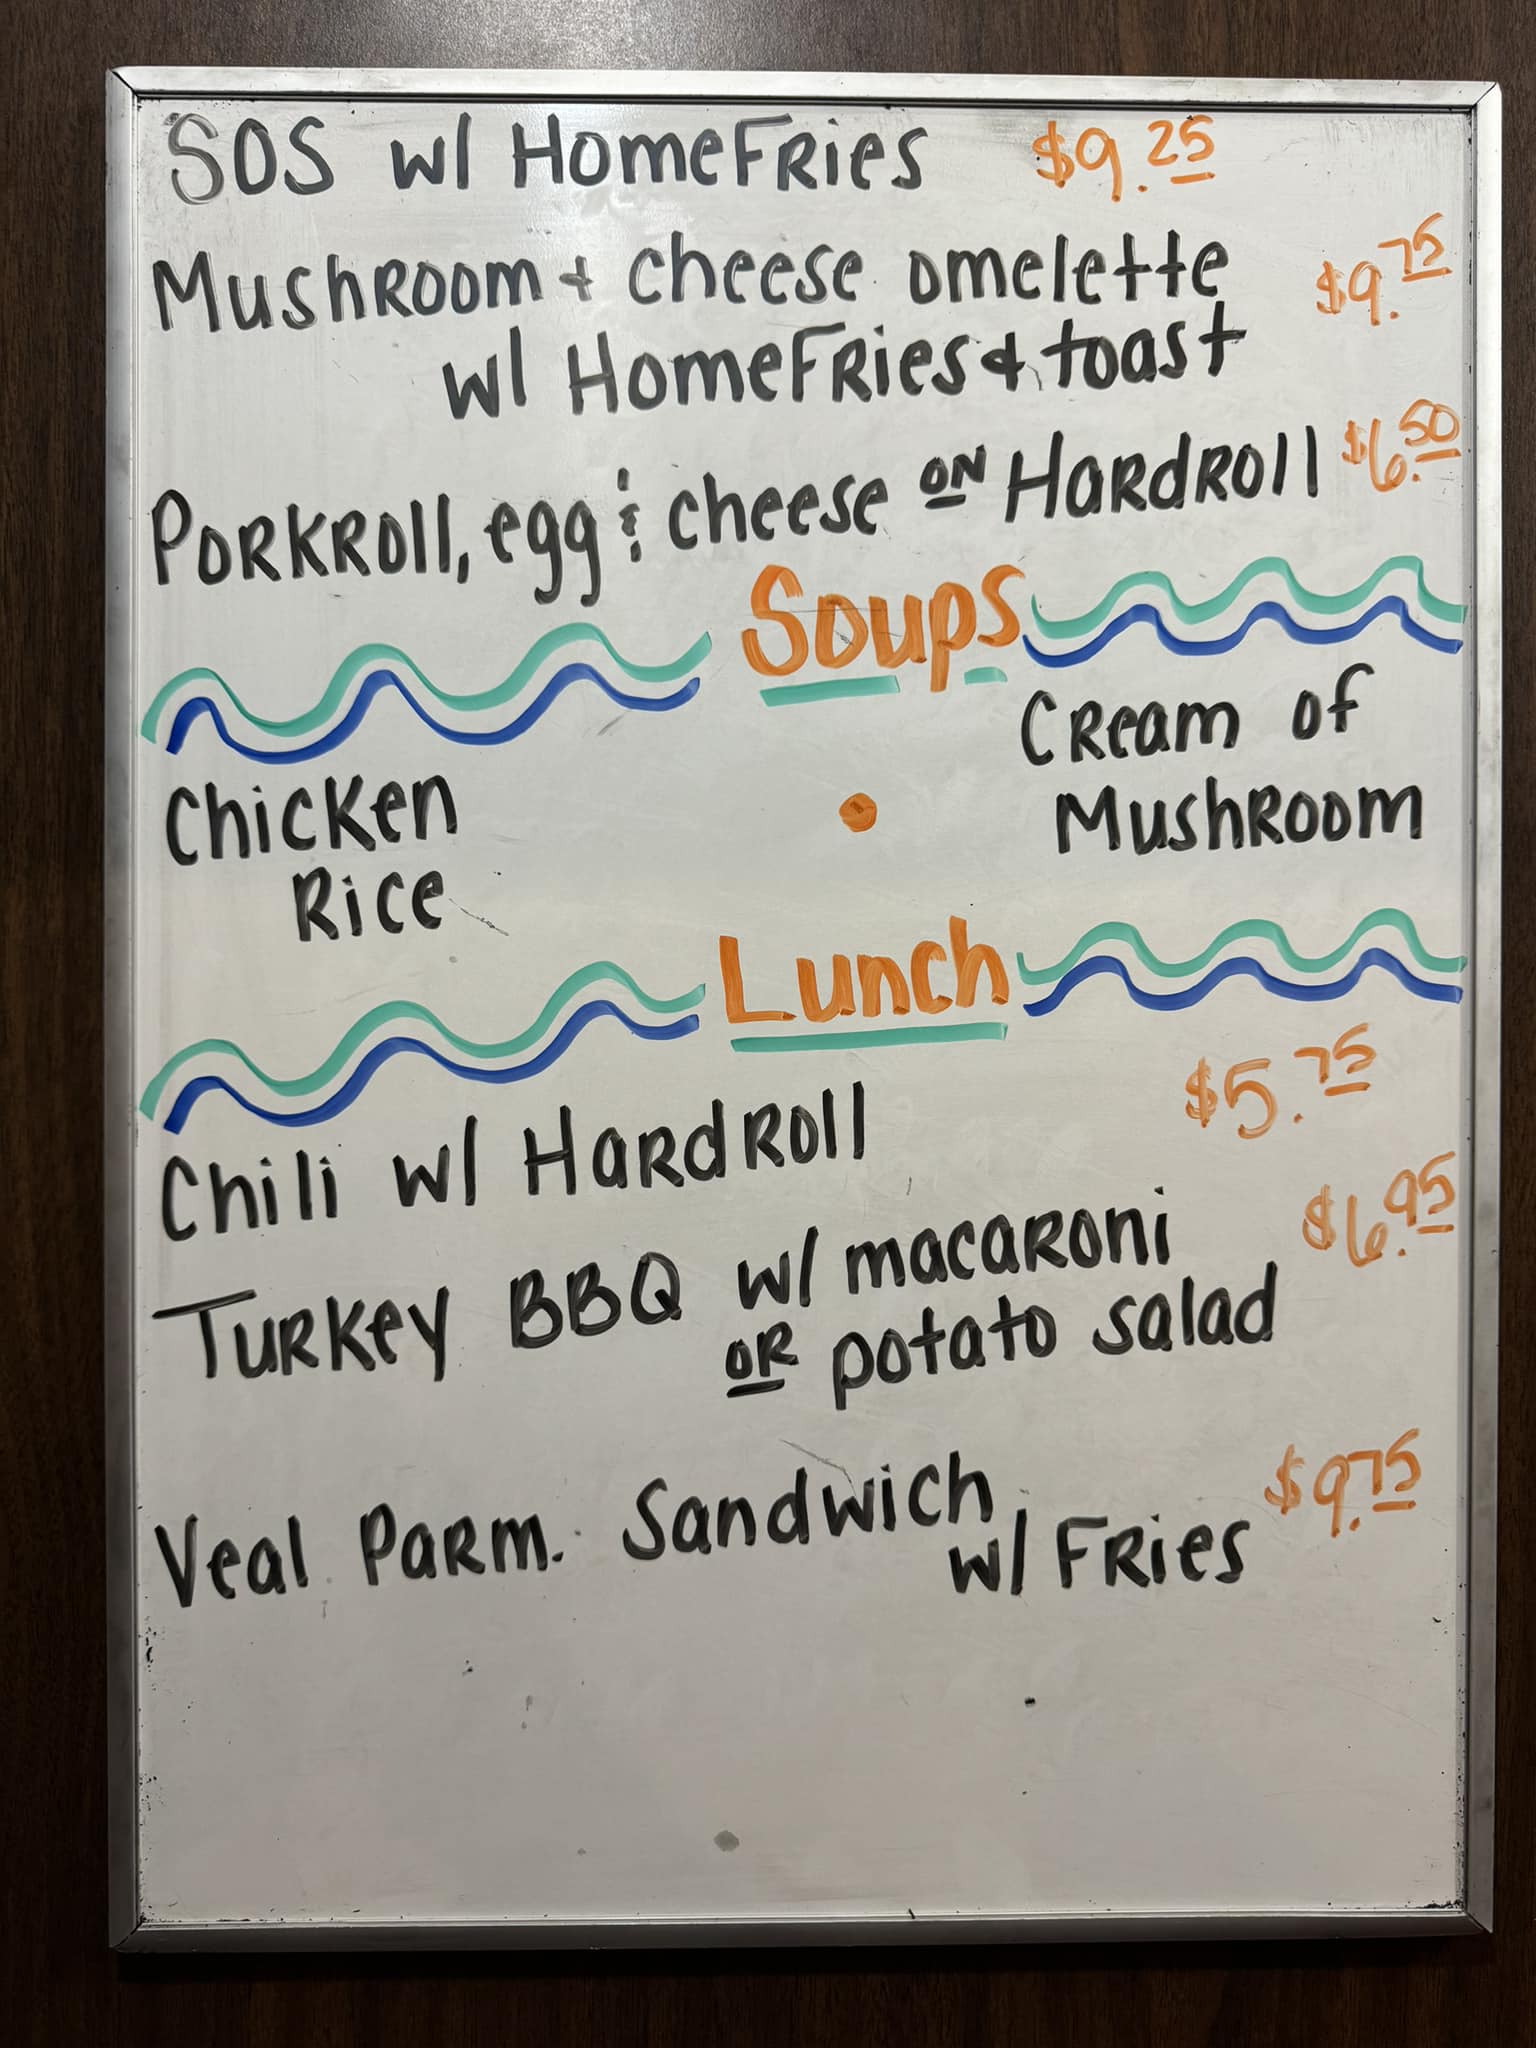 SOS w/ HomeFries $9.25
Mushroom + cheese omelette $9.75
w/ HomeFries & toast
Porkroll, egg & cheese on Hardroll $6.50
Soups
Chicken Rice • Cream of Mushroom
Lunch
Chili w/ Hardroll $5.75
Turkey BBQ w/ macaroni $6.95
or potato salad
Veal Parm. Sandwich $9.75
w/ Fries